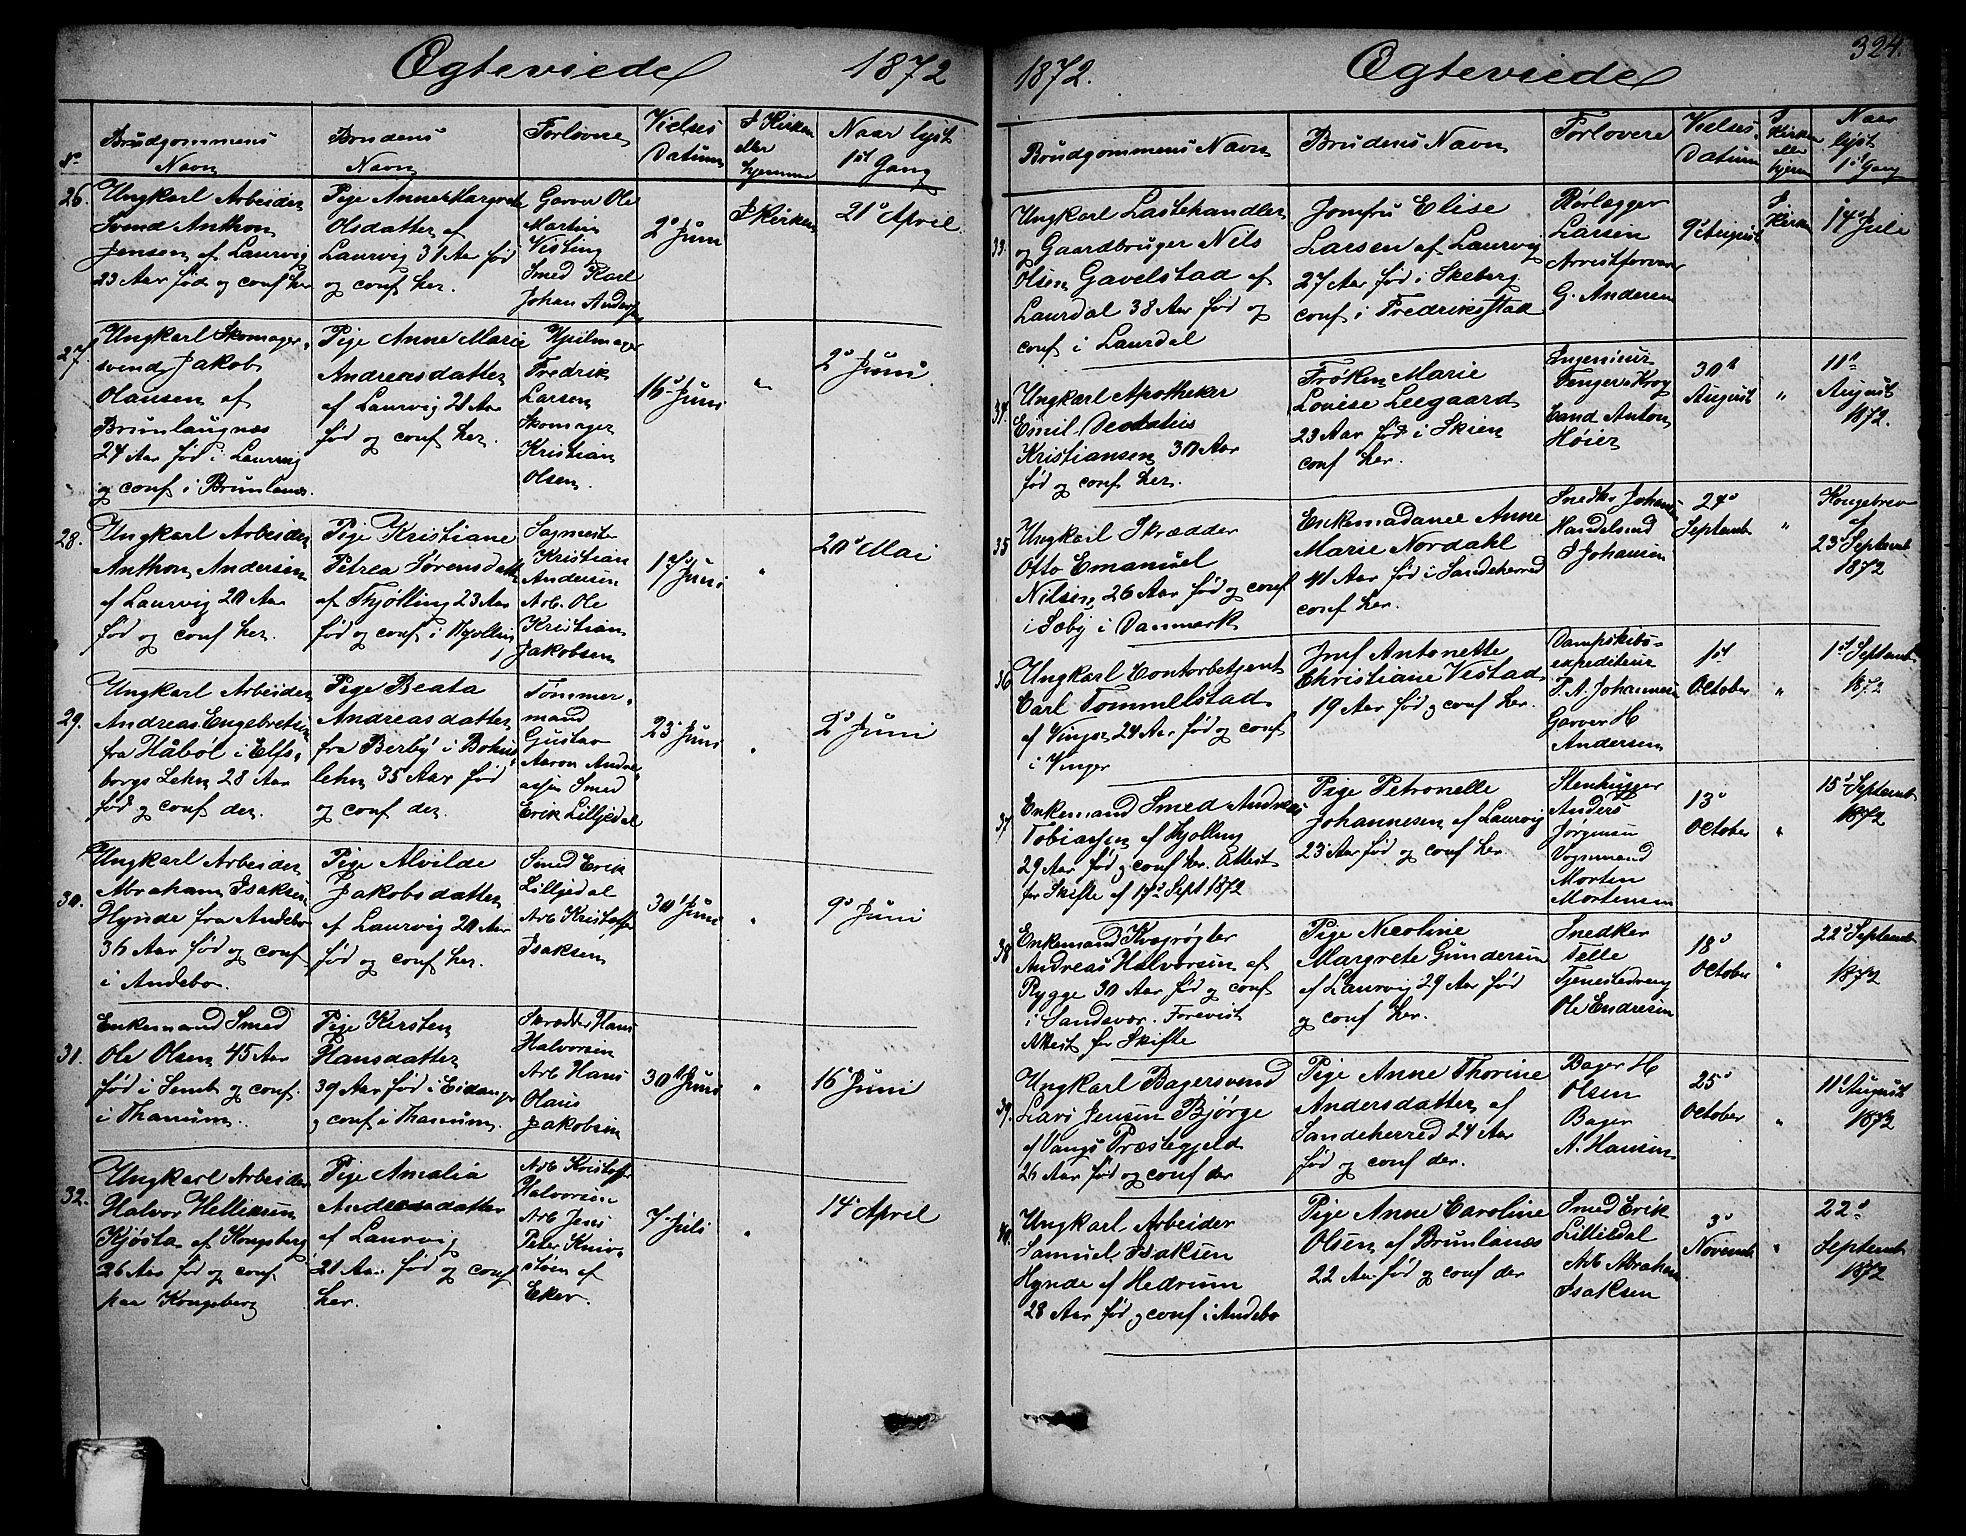 Ægteviede 1872
No
Brudgommens
Navn
Brudens
Navn
Forlovere
Vielses
Datum
I Kirken
eller
hjemme
Naar lyst
1st Gang
26.
Ungkarl Arbeider
Svend Anthon
Jensen af Laurvig
23 Aar føde og conf her
Pige Anne Margrete
Olsdatter af
Laurvig 31 Aar fød
og conf her.
Garver Ole
Martin
Visting
Smed Karl
Johan Anders
2d Juni
I Kirken
21d April.
27.
Ungkarl Skomager-
svend Jakob
Olausen af
Brunlaugnæs
24 Aar fød i Laurvig
og conf i Brunlanæs.
Pige Anne Marie
Andreasdatter
af Laurvig 21 Aar
fød og conf her.
Hjulmager
Fredrik
Larsen
Skomager
Kristian
Olsen
16d Juni
"
2d Juni.
28.
Ungkarl Arbeider
Anthon Andersen
af Laurvig 20 Aar
fød og conf her.
Pige Kristiane
Petrea Sørensdatt
af Thjølling 23 Aar
fød og conf i Hjølling
Sagmester
Kristian
Andersen
Arb. Ole
Kristian
Jakobsen
Juni
"
20d Mai
29.
Ungkarl Arbeider
Andreas Engebretsen
fra Håböl i Elfs-
borgs Lehn 28 Aar
fød og conf der.
Pige Beata
Andreasdatter
fra Berby i Bohus
lehn 35 Aar fød
og conf der.
Tømmer-
mand
Gustav
Aaron Andre-
assen Smed
Erik Lilljedal
23d Juni
"
2d Juni
30.
Ungkarl Arbeider
Abraham Isaksen
Hynde fra Andebo
36 Aar fød og conf
i Andebo.
Pige Alvilde
Jakobsdatter
af Laurvig 20 Aar
fød og conf her.
Smed Erik
Lilljedal
Arb Kristoffer
Isaksen
30d Juni
"
9d Juni
31.
Enkemand Smed
Ole Olsen 45 Aar
fød i Semb og conf.
i Thanum.
Pige Kirsten
Hansdatter
39 Aar fød i Eidanger
og conf i Thanum.
Skrædder Hans
Halvorsen
Arb Hans
Olaus
Jakobsen
30d Juni
"
16d Juni
32.
Ungkarl Arbeider
Halvor Helliksen
Kjøsta af Kongsberg
26 Aar fød og conf
paa Kongsberg
Pige Amalia
Andreasdatter
af Laurvig
21 Aar fød og conf
her.
Arb Kristoffer
Halvorsen
Arb Jens
Peter Kniv-
støen af
Eker.
7d Juli
"
14d April
1872. Ægteviede 324.
Brudgommens Navn
Brudens Navn
Forlovere
Vielses
Datum
I
Kirken
eller
hjem
Naar
lyst
1st Gang
33.
Ungkarl Lastehandler
og Gaardbruger Nils
Olsen Gavelstad af
Laurdal 38 Aar fød og
conf i Laurdal
Jomfru Elise
Larsen af Laurvig
27 Aar fød i Skeberg
conf i Fredriksstad
Rørlegger
Larsen
Arrestforvarer
G. Andersen
August
I
Kirken
14d Juli
34.
Ungkarl Apotheker
Emil Deodatus
Kristiansen 30 Aar
fød og conf her.
Frøken Marie
Louise Leegaard
23 Aar fød i Skien
conf her.
Ingenieur
Fenger-Krog
Cand Anton
Høier
30d
August
"
11d
August
1872.
35
Ungkarl Skrædder
Otto Emanuel
Nilsen 26 Aar fød og conf
i Sæby i Danmark
Enkemadame Anne
Marie Nordahl
41 Aar fød i Sandeherred
conf her.
Snedker Johansen
Handelsmd
J Johansen
24d
Septemb
"
Kongebrev
af
23d Septemb
1872
36
Ungkarl Contorbetjent
Carl Tommelstad
af Vinger 24 Aar fød og conf
i Vinger
Jmf Antonette
Christiane Vestad
19 Aar fød og conf her.
Dampskibs-
expediteur
P. A. Johannesen
Garver H
Andersen
1st
October
"
1st Septemb
1872
37
Enkemand Smed Andreas
Tobiassen af Hjolling
29 Aar fød og conf her. Attest
for Skifte af 17d Sept 1872
Pige Petronelle
Johannesen af Laurvig
23 Aar fød og conf her.
Stenhugger
Anders
Jørgensen
Vognmand
Morten
Mortensen
13d
October
"
15d Septemb
1872
38
Enkemand Kvægrøgter
Andreas Halvorsen af
Rygge 30 Aar fød og conf
i Sandsvær. Forevist
Attest for Skifte
Pige Nicoline
Margrete Gundersen
af Laurvig 29 Aar fød
og conf her.
Snedker
Telle
Tjenestedreng
Ole Endresen
18d
October
"
22d Septemb
1872
39.
Ungkarl Bagersvend
Lars Jensen Bjørge
af Vangs Præstegjeld
26 Aar fød og conf der
Pige Anne Thorine
Andersdatter af
Sandeherred 24 Aar
fød og conf der.
Bager H
Olsen
Bager
A. Hansen
25d
October
"
11d August
1872
40.
Ungkarl Arbeider
Samuel Isaksen
Hynde af Hedrum
28 Aar fød og conf i Andebo
Pige Anne Caroline
Olsen af Brunlanæs
22 Aar fød og conf der
Smed Erik
Lilliedal
Arb Abraham
Isaksen
3d
Novemb
"
22d
Septemb
1872